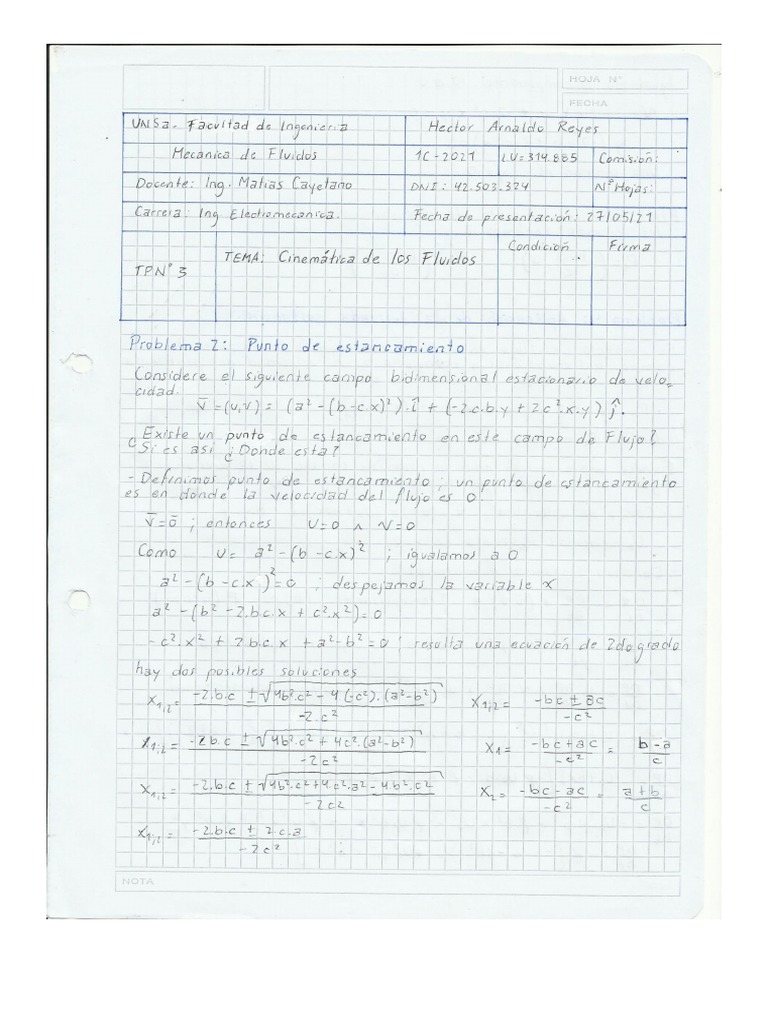 HOJA N°
FECHA
UNSa. Facultad de Ingenieria
Hector Arnaldo Reyes
Mecanica de Fluidos
1C-2021
LU=314.885
Comisión:
Docente: Ing. Matias Cayetano
DNI: 42.503.324
N° Hojas:
Carrera: Ing Electromecanica.
Fecha de presentación: 27/05/21
TPN° 3
TEMA: Cinemática de los Fluidos
Condición
Firma
Problema 2: Punto de estancamiento
Considere el siguiente campo bidimensional estacionario de velo-
cidad.
V̄=(u,v) = (a² - (b-c.x)²).î + (-2.c.b.y + 2c².x.y) ĵ.
¿Existe un punto de estancamiento en este campo de Flujo?
Si es asi ¿Donde esta?
- Definimos punto de estancamiento; un punto de estancamiento
es en donde la velocidad del flujo es 0.
V̄=ō ; entonces U=0 ∧ V=0
Como U= a² - (b - c.x)² ; igualamos a 0
a² - (b - c.x)²=0 ; despejamos la variable x
a² - (b² - 2.b.c.x + c².x²)=0
-c².x² + 2b.c.x + a² - b² =0 ; resulta una ecuación de 2do grado
hay dos posibles soluciones
X₁,₂= (-2.b.c ± √(4b².c² - 4(-c²).(a²-b²)))/(-2.c²)
X₁,₂= (-bc ± ac)/(-c²)
X₁,₂= (-2b.c ± √(4b².c² + 4c².(a²-b²)))/(-2c²)
X₁= (-bc+ac)/(-c²) = (b-a)/c
X₁,₂= (-2.b.c ± √(4b².c²+4.c².a² - 4.b².c²))/(-2c²)
X₂= (-bc-ac)/(-c²) = (a+b)/c
X₁,₂= (-2.b.c ± 2.c.a)/(-2c²)
NOTA